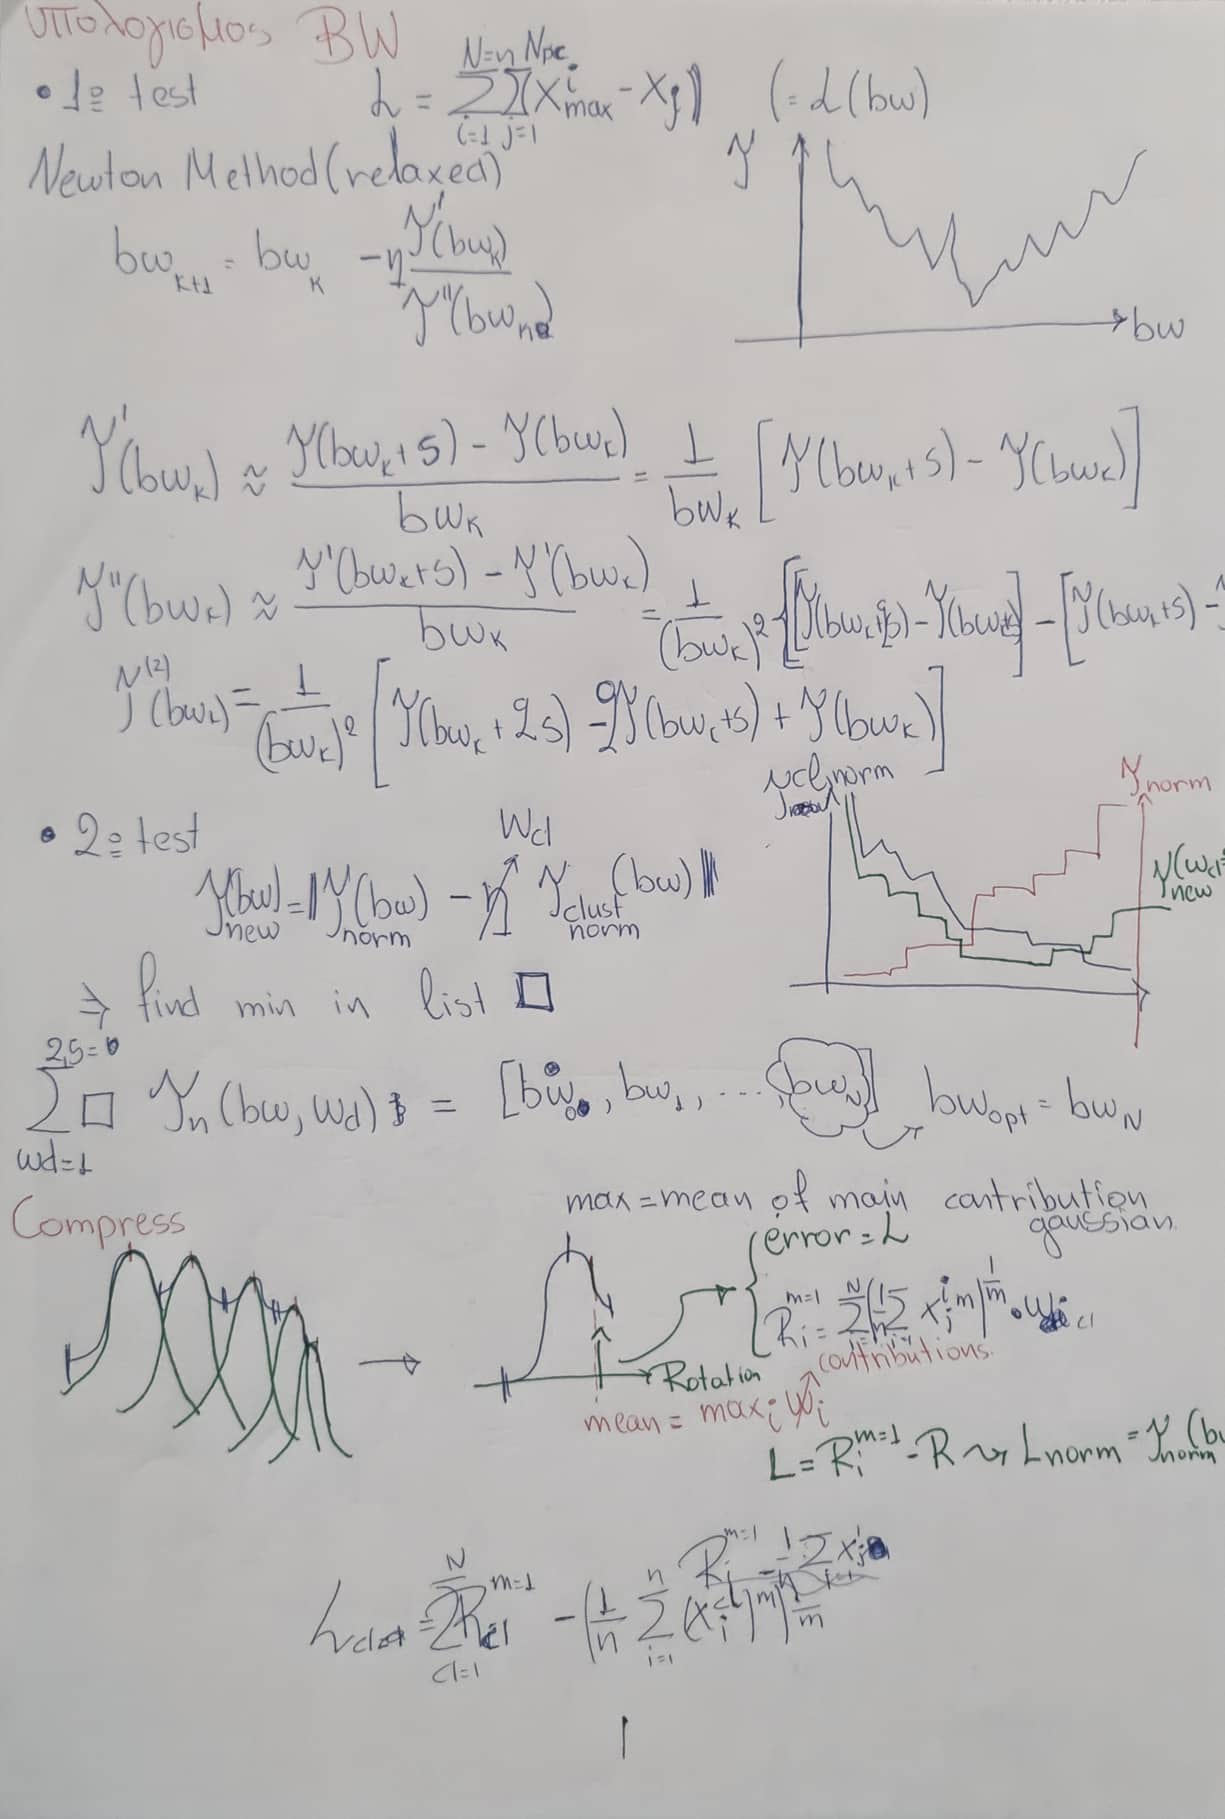 υπολογισμος BW
• 1º test L = Σ_{i=1}^{N=n} Σ_{j=1}^{Npc} (x^i_max - x_j) (= L(bw)
Newton Method (relaxed)
J
bw_{k+1} = bw_k - η J'(bw_k) / J''(bw_n)
bw
J'(bw_k) ≈ (J(bw_k + s) - J(bw_k)) / bw_k = 1/bw_k [J(bw_k + s) - J(bw_k)]
J''(bw_k) ≈ (J'(bw_k + s) - J'(bw_k)) / bw_k = 1/(bw_k)² {[J(bw_k + 2s) - J(bw_k + s)] - [J(bw_k + s) -
J^{(2)}(bw_k) = 1/(bw_k)² [J(bw_k + 2s) - 2J(bw_k + s) + J(bw_k)]
J cl, norm
J norm
• 2º test
W_cl
J_new(bw) = |J_norm(bw) - η J_{clust norm}(bw)|
J_new(w_cl=
⇒ find min in list □
Σ_{wd=1}^{2,5=} □ J_n(bw, wd) = [bw_0, bw_1, ..., bw_N] bw_opt = bw_N
Compress
max = mean of main contribution gaussian
error = L
R_i^{m=1} = Σ^N (1/n Σ x_j^{i m})^{1/m} · w_cl
contributions
Rotation
mean = max_i w_i
L = R_i^{m=1} - R ⤳ Lnorm = J_norm(b
R_i^{m=1} - 1/n Σ x_j
L_clust = Σ_{cl=1}^{N} R_cl^{m=1} - (1/n Σ_{i=1}^{n} (x_i^{cl})^m)^{1/m}